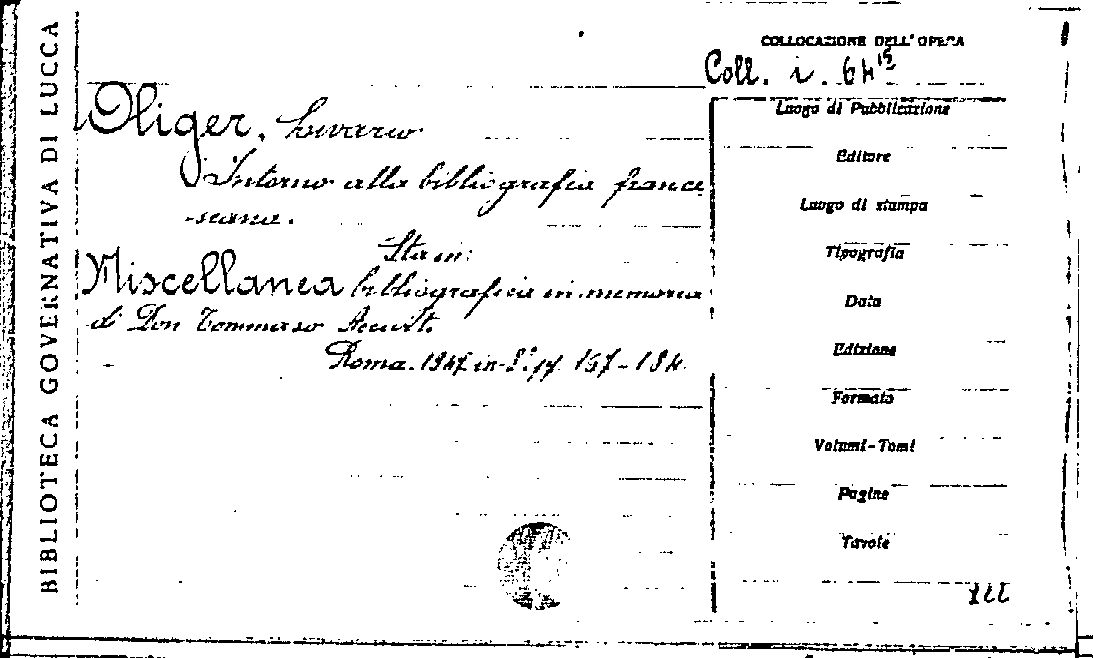 BIBLIOTECA GOVERNATIVA DI LUCCA
COLLOCAZIONE DELL'OPERA
Coll. i. 64¹⁵
Oliger, Livario
Intorno alla bibliografia france
-scana.
Sta in:
Miscellanea bibliografica in memoria
di Don Tommaso Accurti.
Roma. 1947 in-8°. pp. 167-184.
Luogo di Pubblicazione
Editore
Luogo di stampa
Tipografia
Data
Edizione
Formato
Volumi-Tomi
Pagine
Tavole